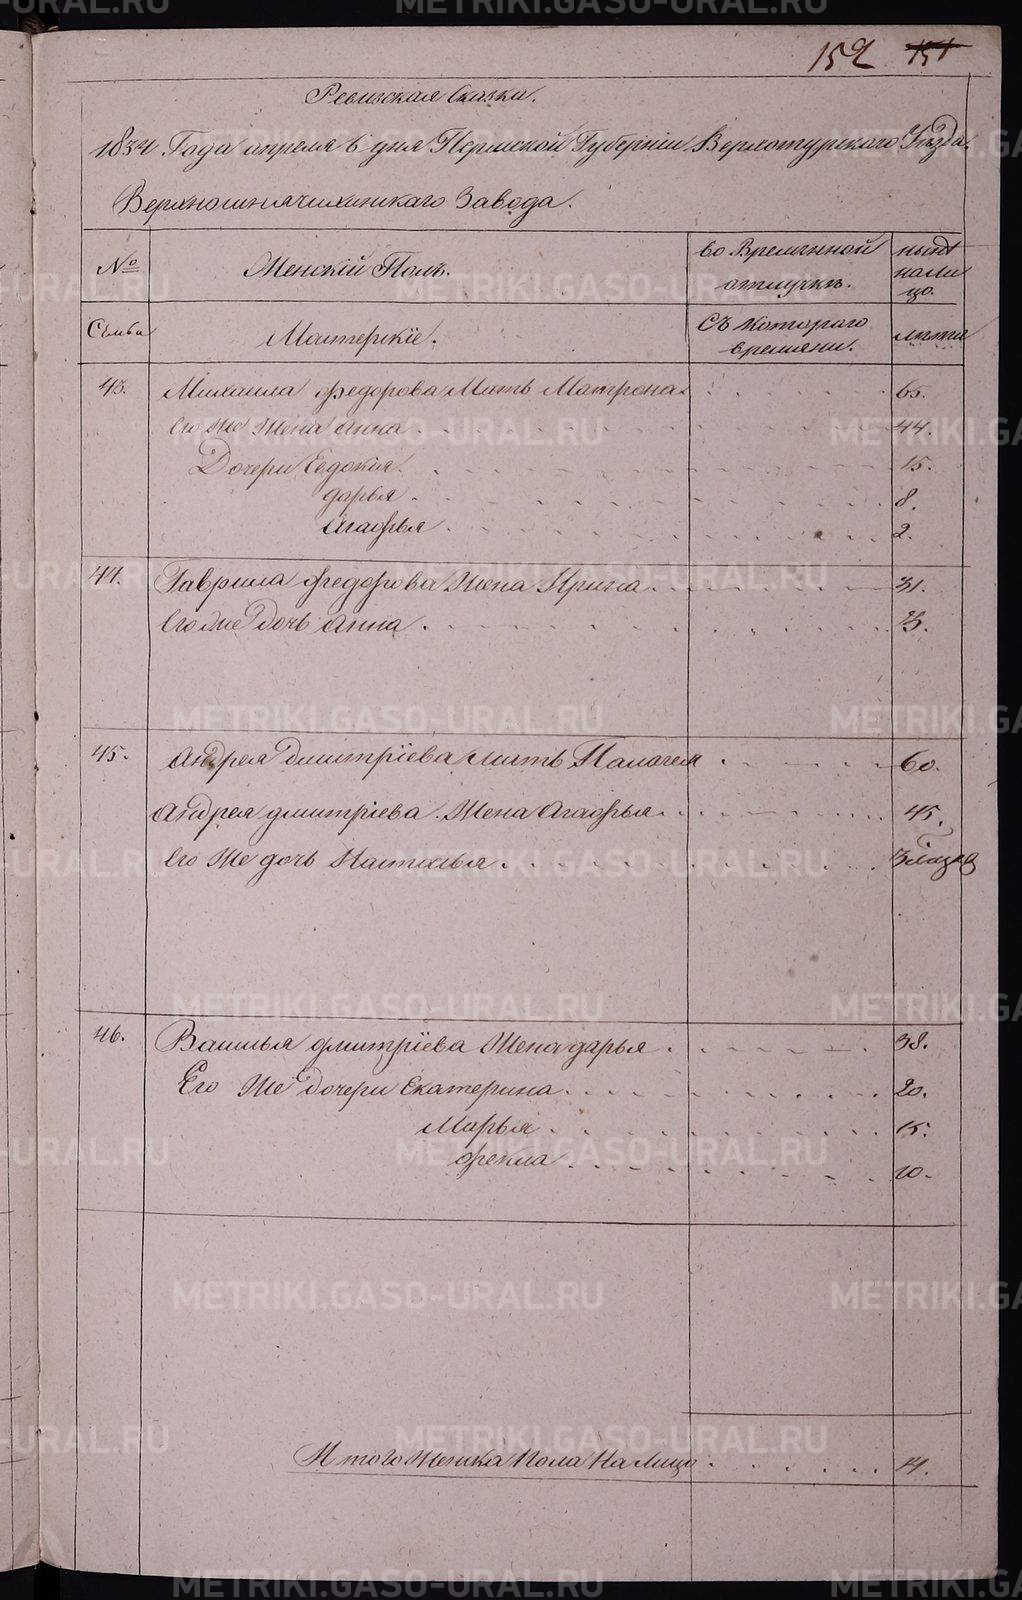 152 151
Ревизская Сказка.
1834 Года апреля 6 дня Пермской Губернии Верхотурского Уезда.
Верхнесинячихинскаго Завода.
№
Женскій Полъ.
во Временной отлучкѣ.
нынѣ на лицо.
Семьи
Мастерскіе.
Съ котораго времяни.
лѣта
43. Михаила Федорова Мать Матрона 65.
Его же Жена Анна 44.
Дочери Евдокия 15.
дарья 8.
Агафья 2.
44. Гаврила Федорова Жена Ирина 31.
Его же дочь Анна 3.
45. Андрея дмитріева мать Палагея 60.
Андрея дмитріева Жена Агафья 45.
Его же дочь Настасья
46. Василья дмитріева Жена дарья 38.
Его же дочери Екатерина 20.
Марья 15.
фекла 10.
Итого женска пола на лицо
METRIKI.GASO-URAL.RU